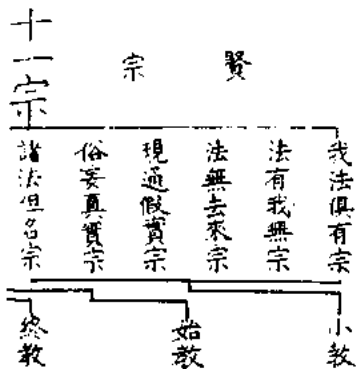 賢宗
十一宗
我法俱有宗
法有我無宗
法無去來宗
現通假實宗
俗妄真實宗
諸法但名宗
小教
始教
終教